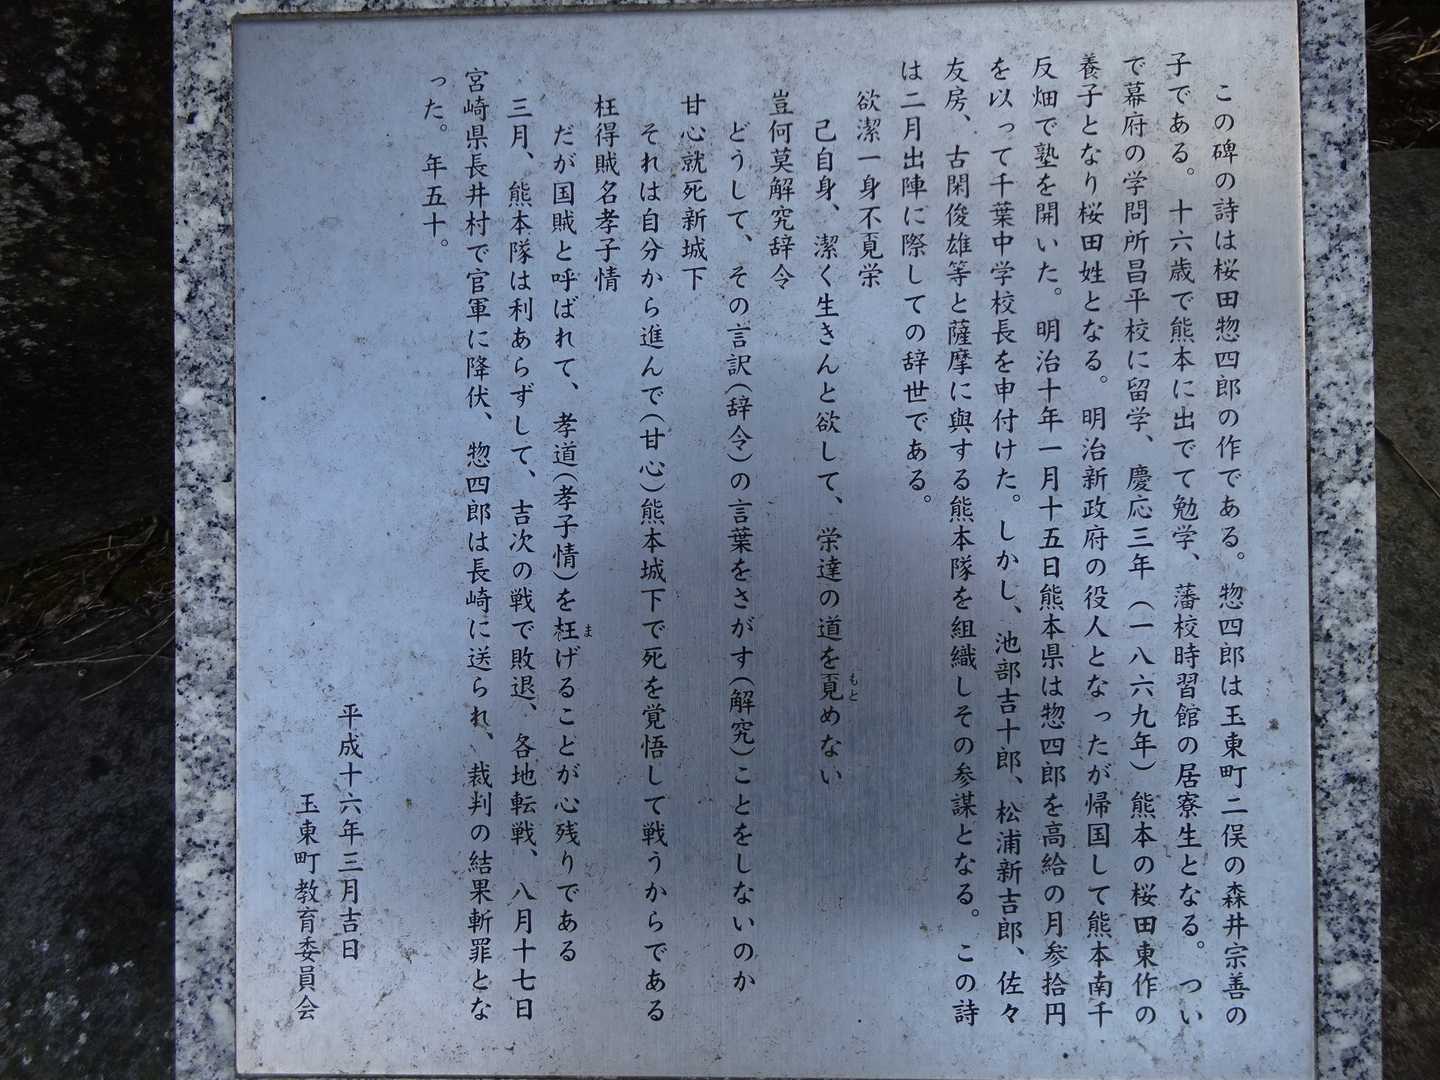 この碑の詩は桜田惣四郎の作である。惣四郎は玉東町二俣の森井宗善の
子である。十六歳で熊本に出でて勉学、藩校時習館の居寮生となる。つい
で幕府の学問所昌平校に留学、慶応三年（一八六九年）熊本の桜田東作の
養子となり桜田姓となる。明治新政府の役人となったが帰国して熊本南千
反畑で塾を開いた。明治十年一月十五日熊本県は惣四郎を高給の月参拾円
を以って千葉中学校長を申付けた。しかし、池部吉十郎、松浦新吉郎、佐々
友房、古閑俊雄等と薩摩に與する熊本隊を組織しその参謀となる。この詩
は二月出陣に際しての辞世である。
欲潔一身不覓栄
己自身、潔く生きんと欲して、栄達の道を覓めない
もと
豈何莫解究辞令
どうして、その言訳(辞令)の言葉をさがす(解究)ことをしないのか
甘心就死新城下
それは自分から進んで(甘心)熊本城下で死を覚悟して戦うからである
枉得賊名孝子情
だが国賊と呼ばれて、孝道(孝子情)を枉げることが心残りである
ま
三月、熊本隊は利あらずして、吉次の戦で敗退、各地転戦、八月十七日
宮崎県長井村で官軍に降伏、惣四郎は長崎に送られ、裁判の結果斬罪とな
った。年五十。
平成十六年三月吉日
玉東町教育委員会